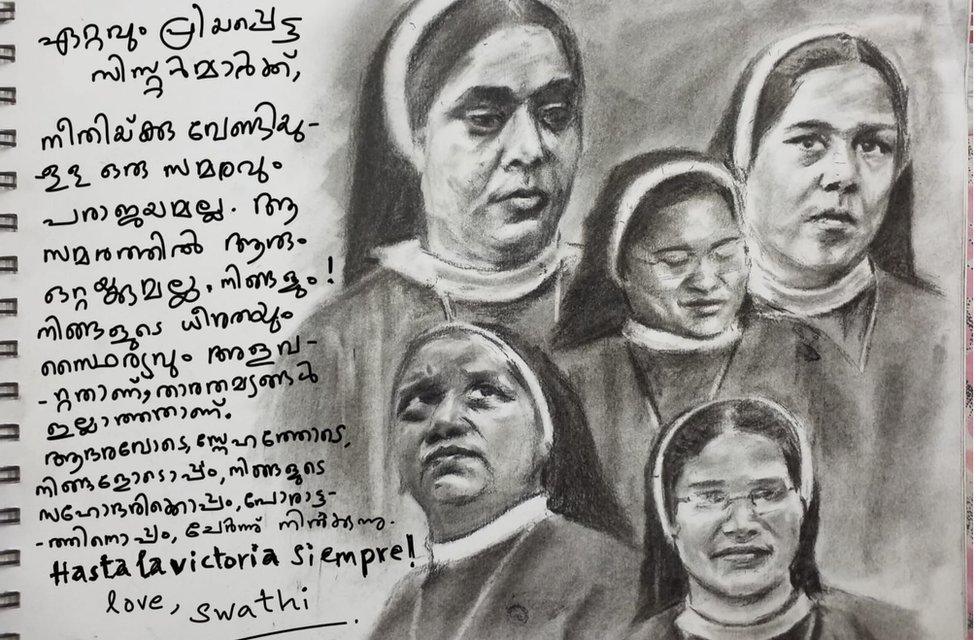 ഏറ്റവും പ്രിയപ്പെട്ട
സിസ്റ്റർമാർക്ക്,
നീതിയ്ക്കു വേണ്ടിയു-
ള്ള ഒരു സമരവും
പരാജയമല്ല. ആ
സമരത്തിൽ ആരും
ഒറ്റയ്ക്കുമല്ല, നിങ്ങളും!
നിങ്ങളുടെ ധീരതയും
സ്ഥൈര്യവും അളവ-
-റ്റതാണ്, താരതമ്യങ്ങൾ
ഇല്ലാത്തതാണ്.
ആദരവോടെ, സ്നേഹത്തോടെ,
നിങ്ങളോടൊപ്പം, നിങ്ങളുടെ
സഹോദരിക്കൊപ്പം, പോരാട്ട-
-ത്തിനൊപ്പം, ചേർന്ന് നിൽക്കുന്നു.
Hasta la victoria Siempre!
love, swathi